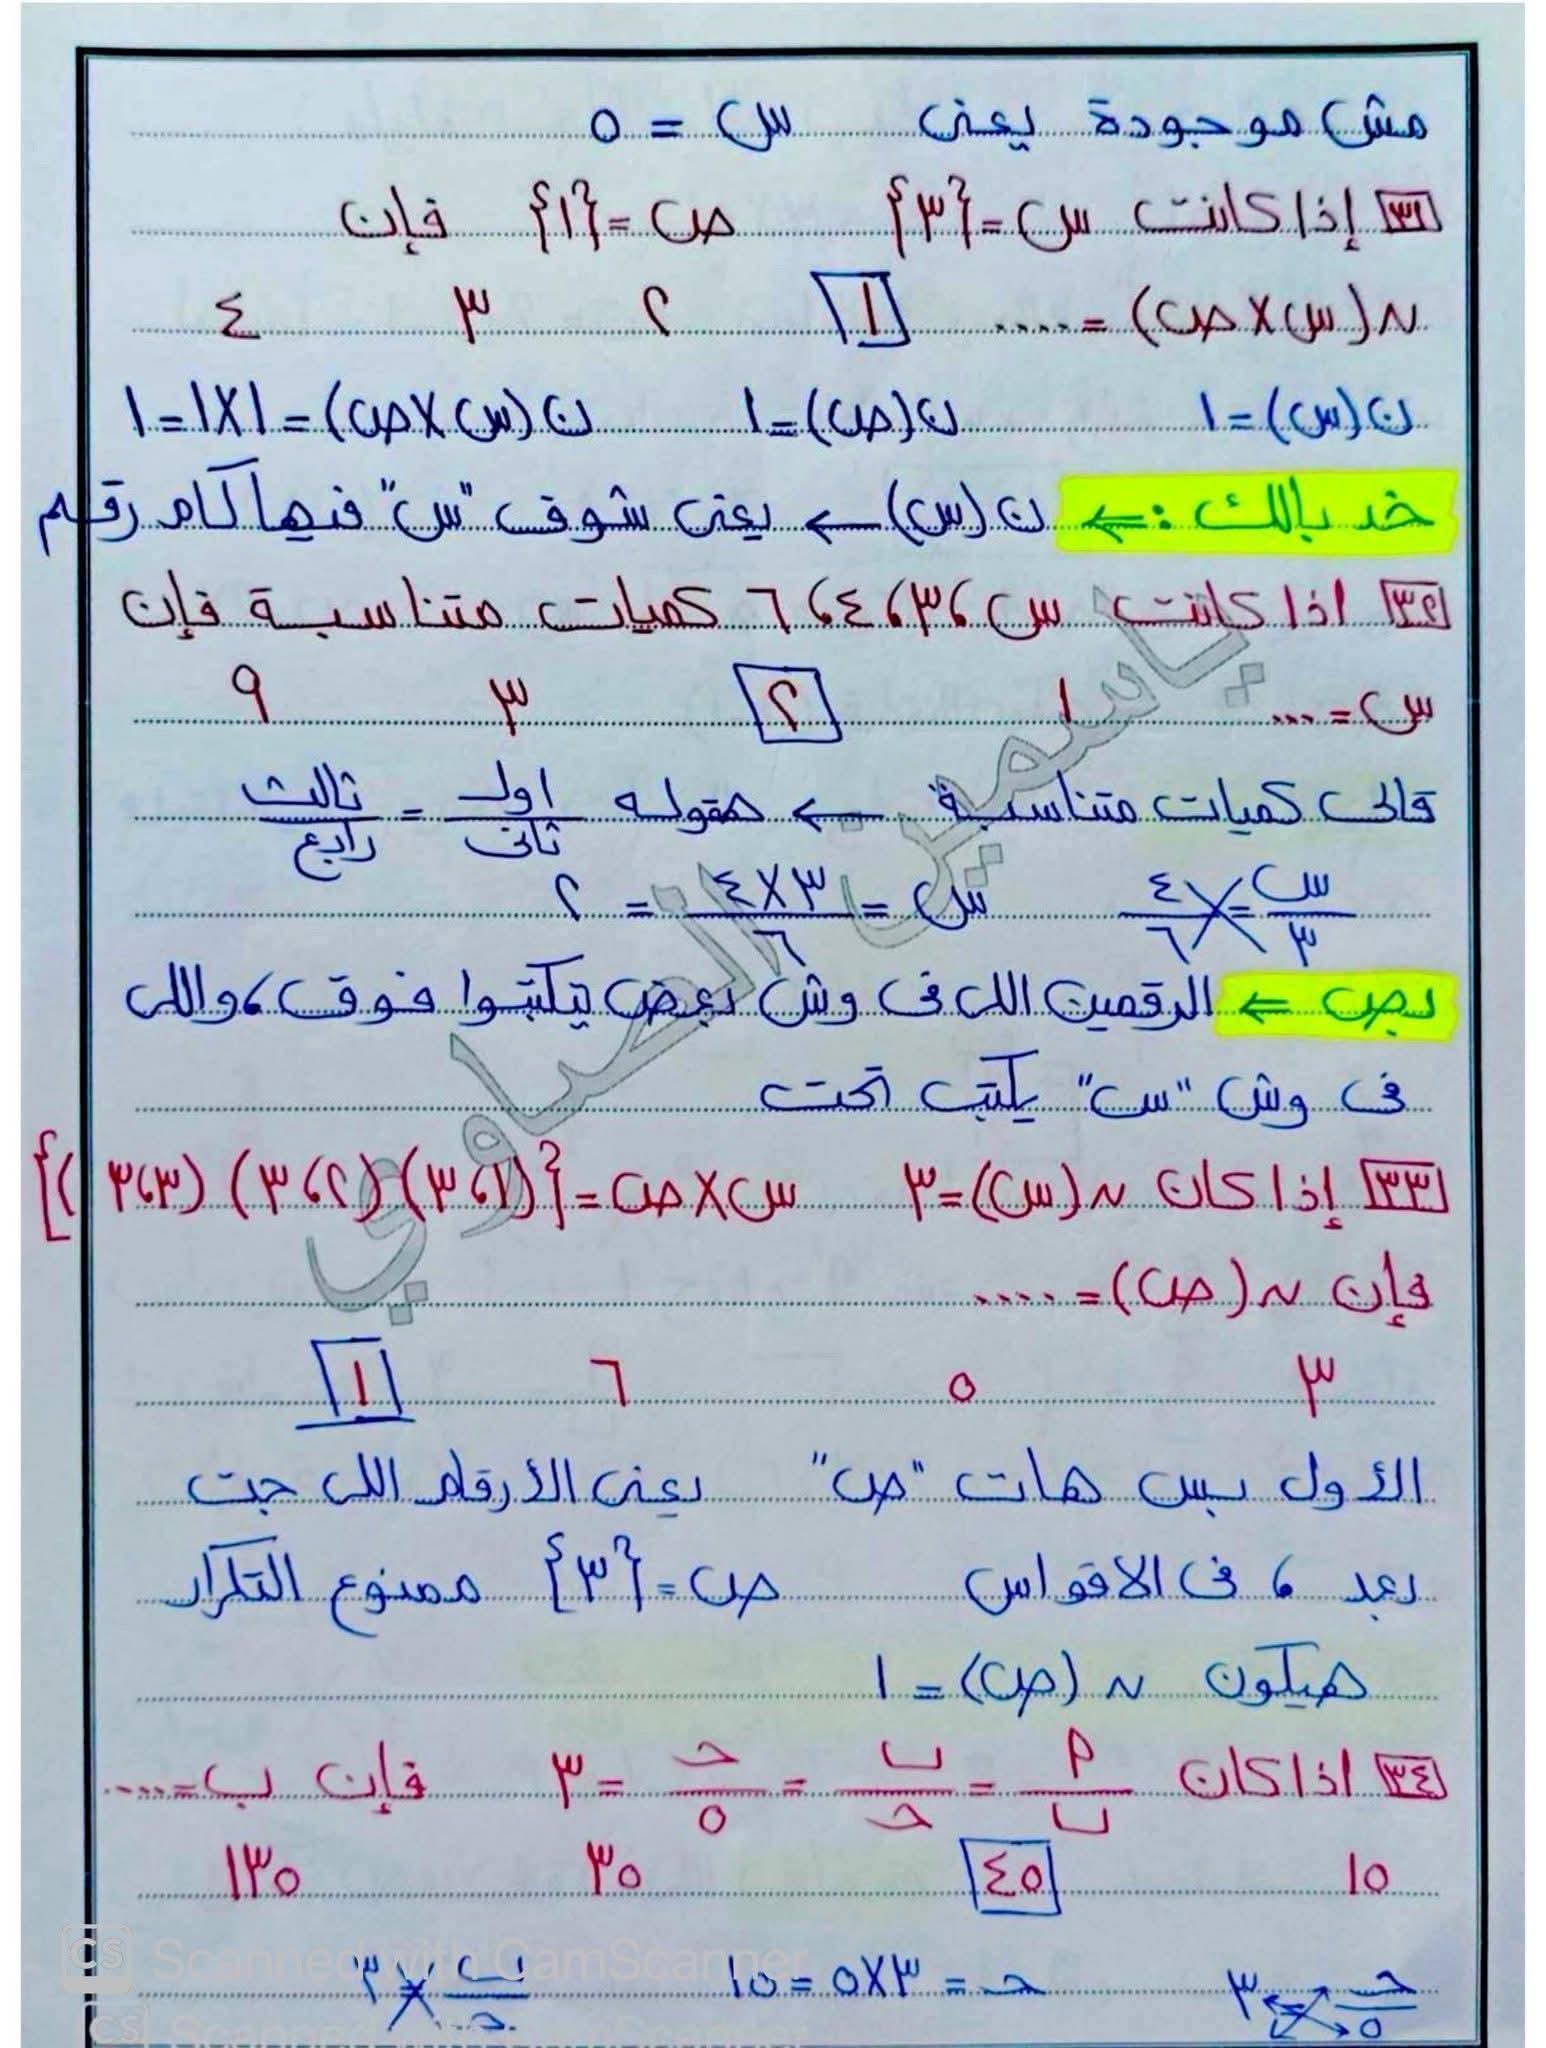 مش موجودة يعنى س = ٥
٣١ إذا كانت س = {٣} ص = {١} فإن
ن (س × ص) = .... ١ ٢ ٣ ٤
ن (س) = ١ ن (ص) = ١ ن (س × ص) = ١ × ١ = ١
خد بالك :← ن (س) ← يعنى شوف "س" فيها كام رقم
٣٢ اذا كانت س ، ٣ ، ٤ ، ٦ كميات متناسبة فإن
س = ... ١ ٢ ٣ ٩
قالى كميات متناسبة ← هقوله اول/ثانى = ثالث/رابع
س/٣ = ٤/٦ س = ٣ × ٤/٦ = ٢
بص ← الرقمين اللى فى وش بعض يتكتبوا فوق ، واللى
فى وش "س" يكتب تحت
٣٣ إذا كان ن (س) = ٣ س × ص = {(١ ، ٣) (٢ ، ٣) (٣ ، ٣)}
فإن ن (ص) = ....
٣ ٥ ٦ ١
الأول بس هات "ص" يعنى الأرقام اللى جت
بعد ، فى الاقواس ص = {٣} ممنوع التكرار
هيكون ن (ص) = ١
٣٤ اذا كان م/ب = ب/حـ = حـ/٥ = ٣ فإن ب = ....
١٥ ٤٥ ٣٥ ١٣٥
حـ/٥ = ٣ حـ = ٣ × ٥ = ١٥ ب/حـ = ٣
ياسمين الصاوي
CS Scanned with CamScanner
CS Scanned with CamScanner